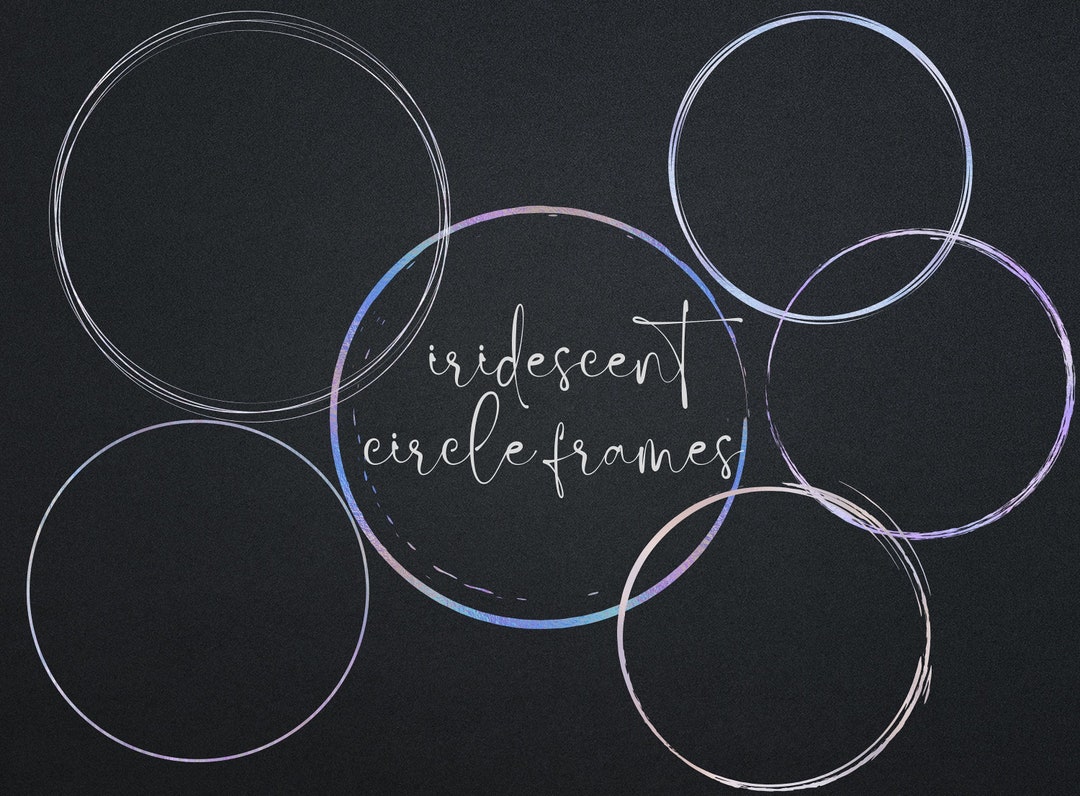 iridescent
circle frames